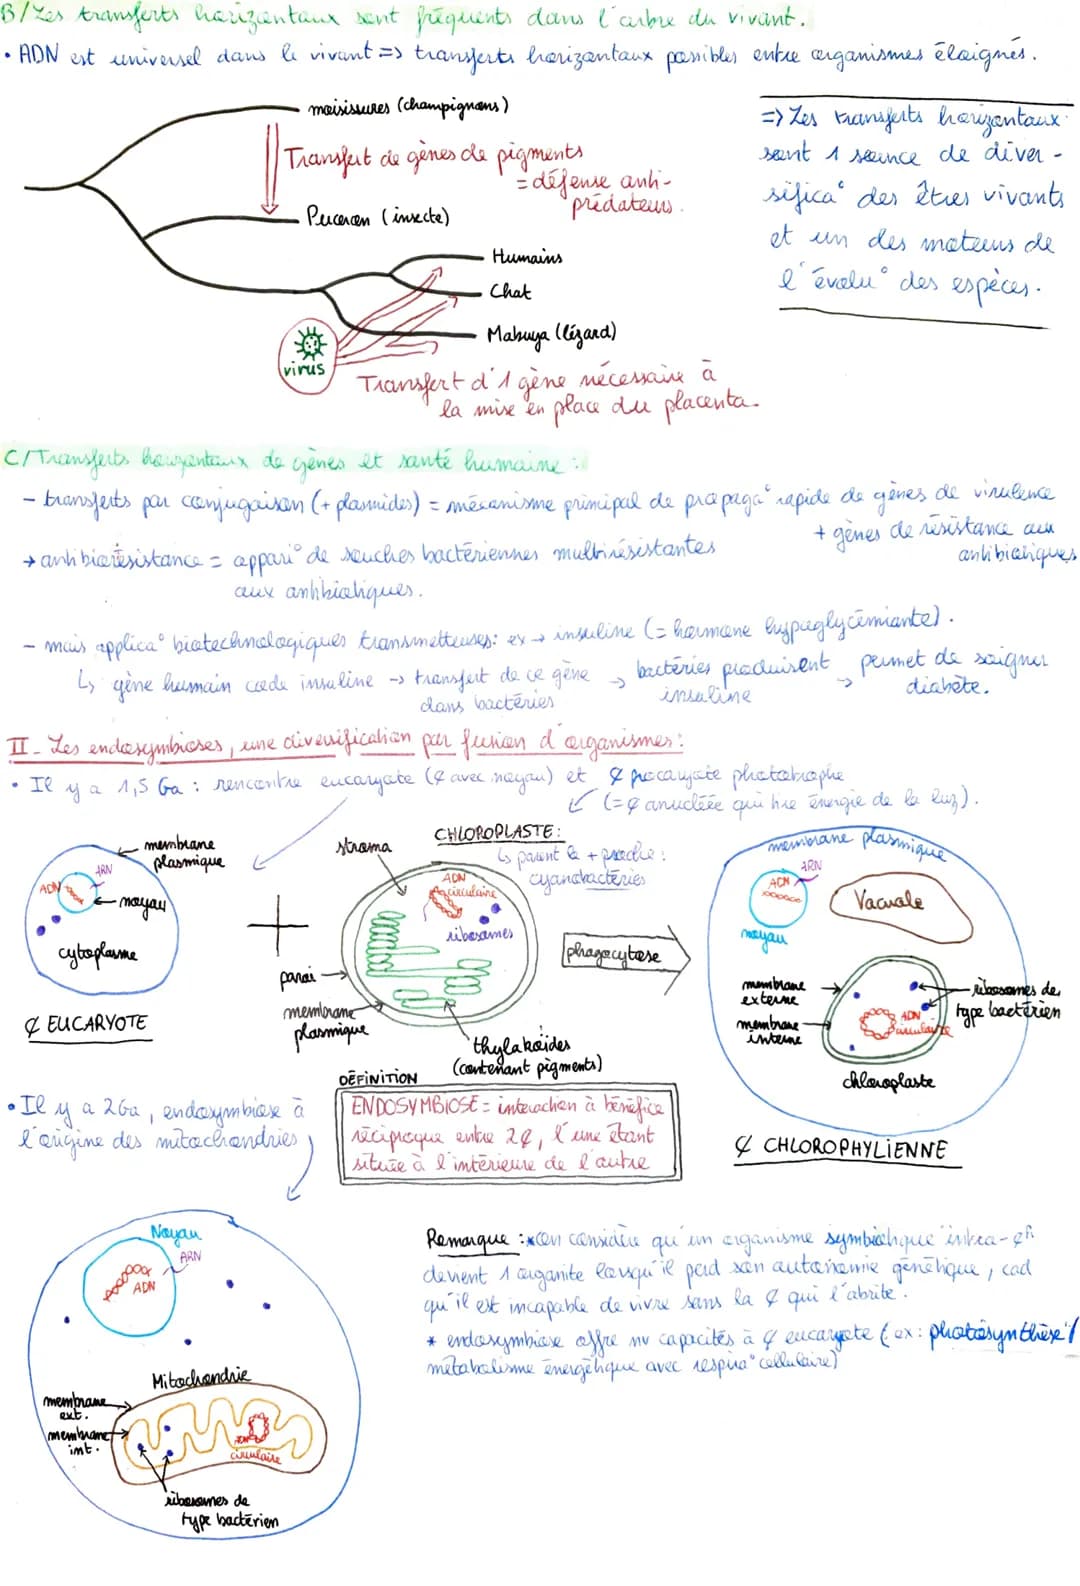 B/ Les transferts horizontaux sont fréquents dans l'arbre du vivant.
• ADN est universel dans le vivant => transferts horizontaux possibles entre organismes éloignés.
moisissures (champignons)
Transfert de gènes de pigments
= défense anti-
prédateurs.
Puceron (insecte)
Humains
Chat
Mabuya (lézard)
virus
Transfert d'1 gène nécessaire à
la mise en place du placenta.
=> Les transferts horizontaux
sont 1 source de diver-
sifica° des êtres vivants
et un des moteurs de
l'évolu° des espèces.
C/ Transferts horizontaux de gènes et santé humaine :
- transferts par conjugaison (+ plasmides) = mécanisme principal de propaga° rapide de gènes de virulence
+ gènes de résistance aux
antibiotiques
→ antibiorésistance = appari° de souches bactériennes multirésistantes
aux antibiotiques.
- mais applica° biotechnologiques transmetteuses: ex → insuline (= hormone hypoglycémiante).
↳ gène humain code insuline -> transfert de ce gène
dans bactéries
→ bactéries produisent
insuline
→ permet de soigner
diabète.
II - Les endosymbioses, une diversification par fusion d'organismes :
• Il y a 1,5 Ga : rencontre eucaryote (¢ avec noyau) et ¢ procaryote phototrophe
(= ¢ anucléée qui tire énergie de la luz).
membrane
plasmique
ARN
ADN
noyau
cytoplasme
¢ EUCARYOTE
CHLOROPLASTE :
↳ parent le + proche :
cyanobactéries
stroma
ADN
circulaire
ribosomes
paroi
membrane
plasmique
thylakoïdes
(contenant pigments)
phagocytose
membrane plasmique
ARN
ADN
noyau
Vacuole
membrane
externe
membrane
interne
ribosomes de
type bactérien
ADN
circulaire
chloroplaste
¢ CHLOROPHYLIENNE
DÉFINITION
ENDOSYMBIOSE = interaction à bénéfice
réciproque entre 2¢, l'une étant
située à l'intérieure de l'autre
• Il y a 2Ga, endosymbiose à
l'origine des mitochondries
Noyau
ARN
ADN
Mitochondrie
membrane
ext.
membrane
int.
circulaire
ribosomes de
type bactérien
Remarque : * on considère qu'un organisme symbiotique intra-¢R
devient 1 organite lorsqu'il perd son autonomie génétique, cad
qu'il est incapable de vivre sans la ¢ qui l'abrite.
* endosymbiose offre nv capacités à ¢ eucaryote (ex : photosynthèse /
métabolisme énergétique avec respira° cellulaire)